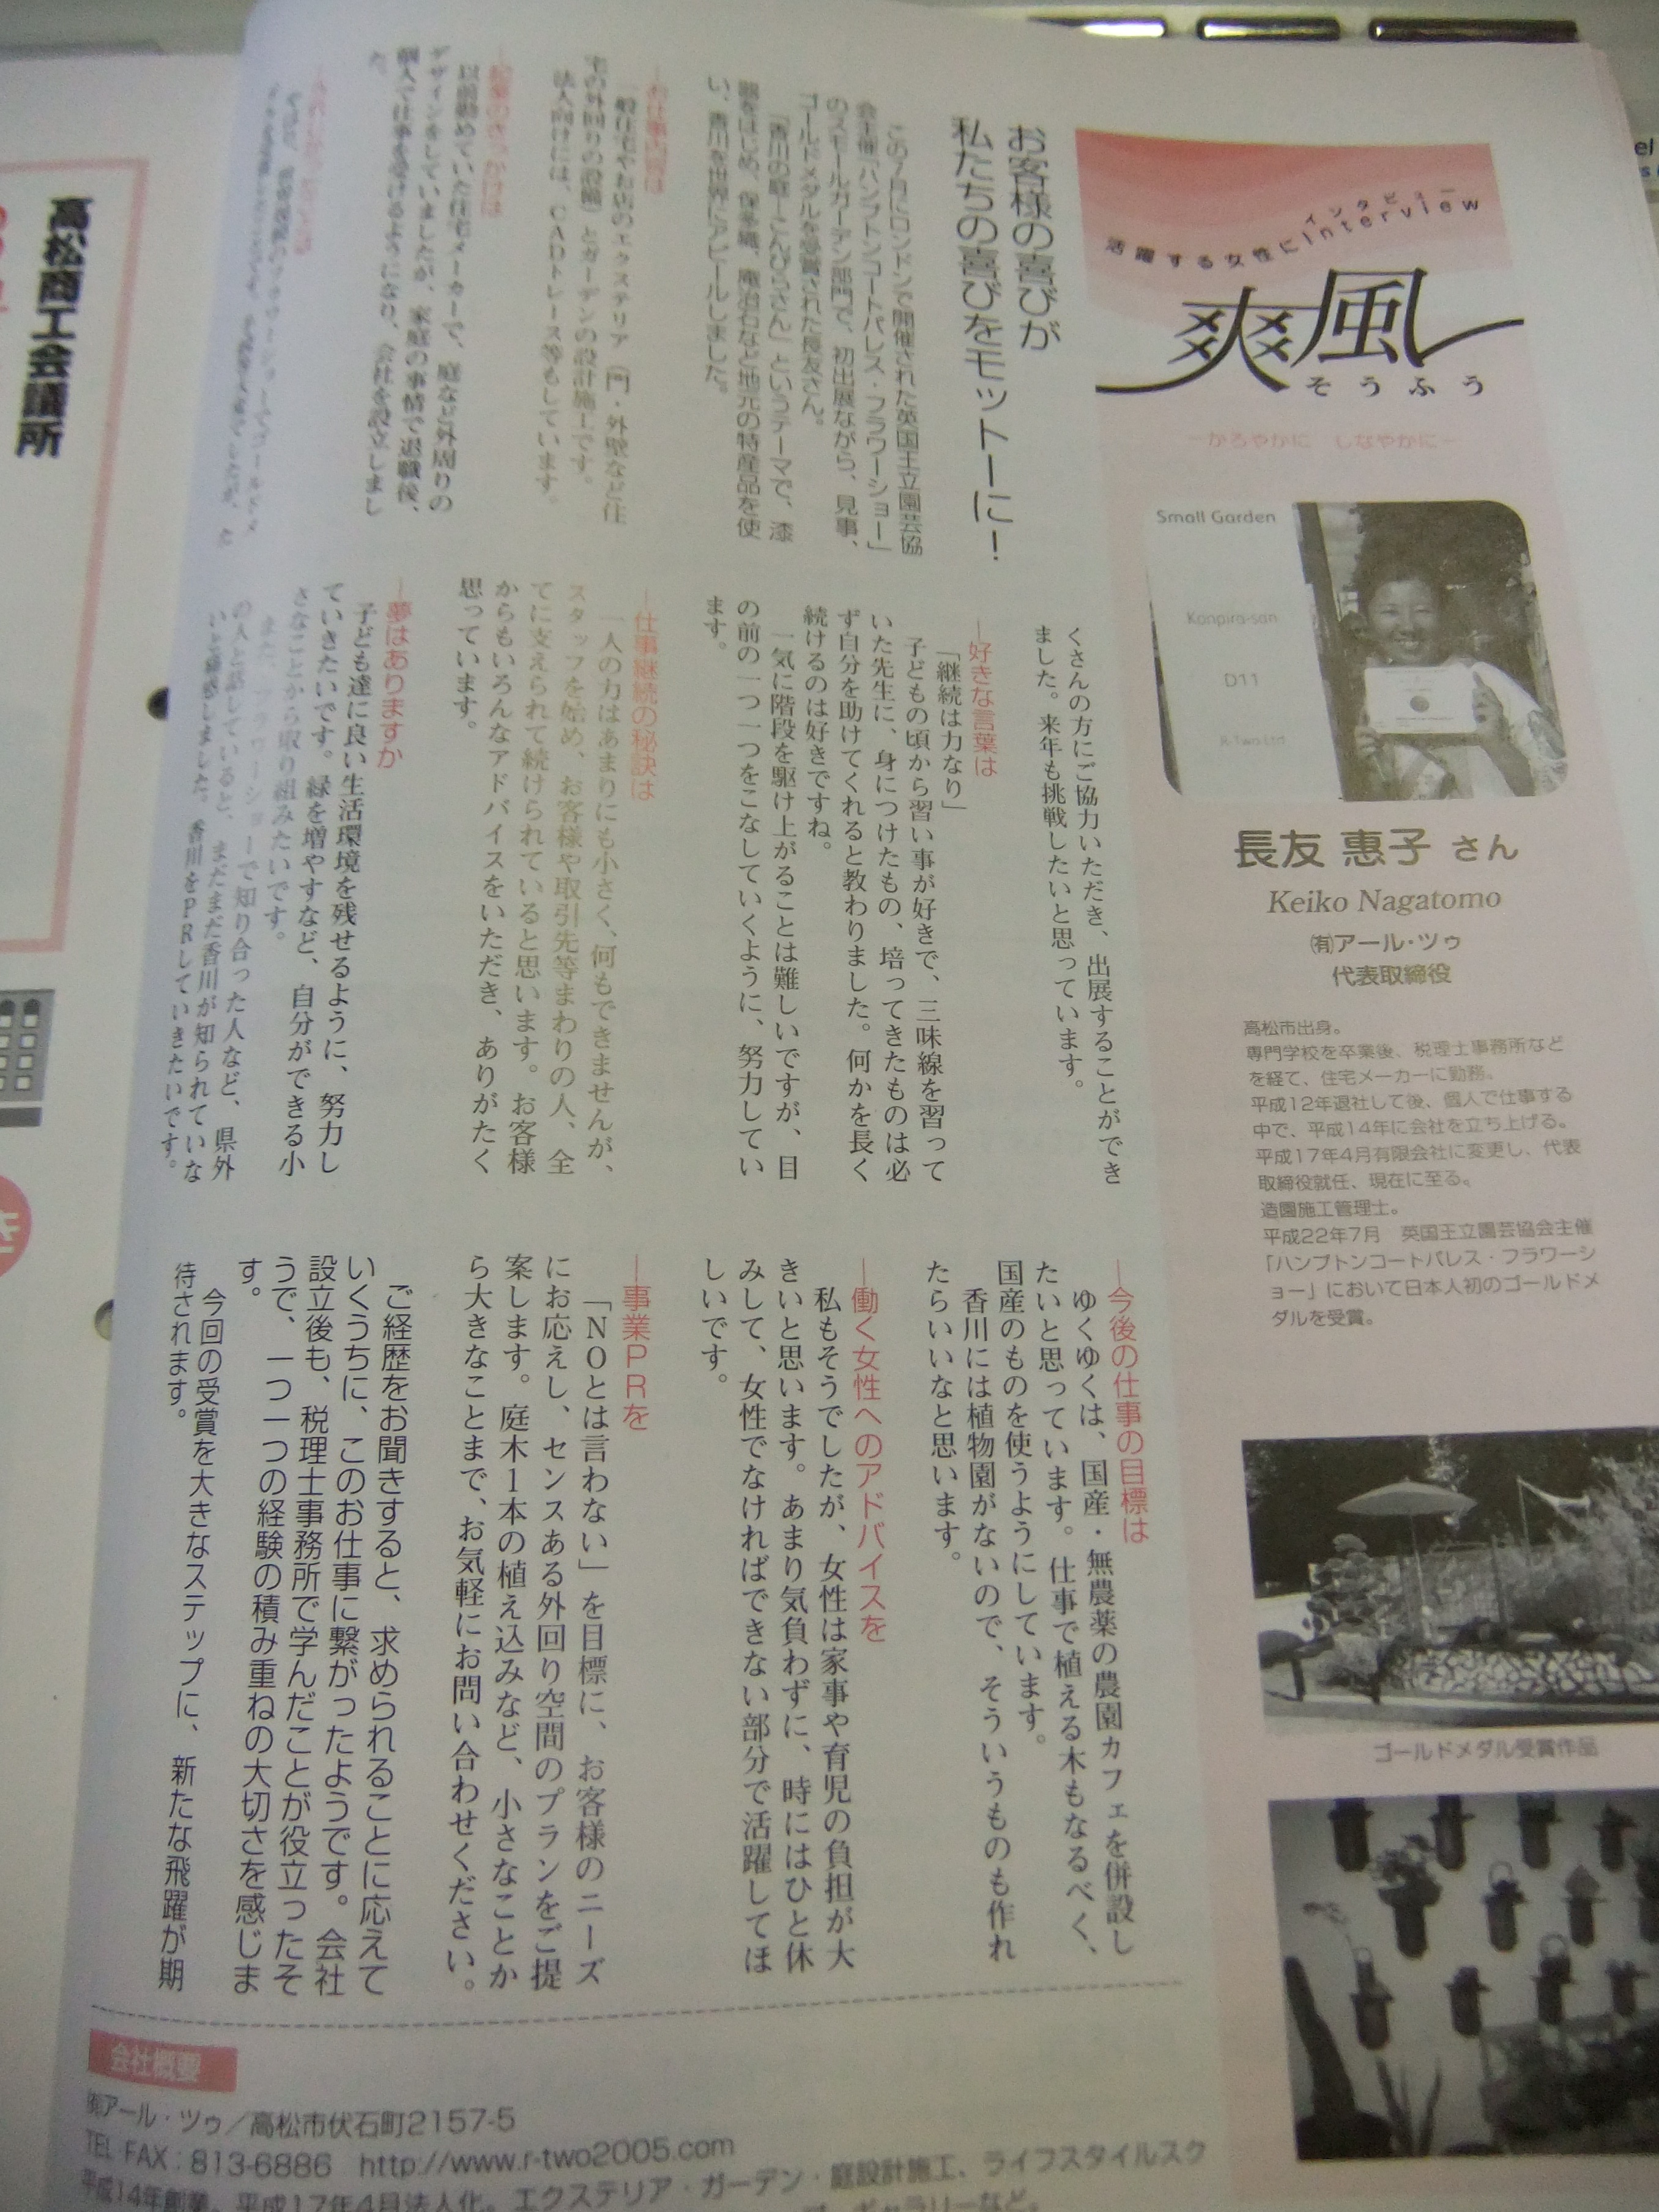 インタビュー
活躍する女性にInterview
爽風
そうふう
－かろやかに　しなやかに－
Small Garden
Konpira-san
D11
R-Two Ltd
長友 惠子 さん
Keiko Nagatomo
㈲アール・ツゥ
代表取締役
高松市出身。
専門学校を卒業後、税理士事務所など
を経て、住宅メーカーに勤務。
平成12年退社して後、個人で仕事する
中で、平成14年に会社を立ち上げる。
平成17年4月有限会社に変更し、代表
取締役就任、現在に至る。
造園施工管理士。
平成22年7月　英国王立園芸協会主催
「ハンプトンコートパレス・フラワーシ
ョー」において日本人初のゴールドメ
ダルを受賞。
ゴールドメダル受賞作品
お客様の喜びが
私たちの喜びをモットーに！
この7月にロンドンで開催された英国王立園芸協
会主催「ハンプトンコートパレス・フラワーショー」
のスモールガーデン部門で、初出展ながら、見事、
ゴールドメダルを受賞された長友さん。
「香川の庭－こんぴらさん」というテーマで、漆
器をはじめ、保多織、庵治石など地元の特産品を使
い、香川を世界にアピールしました。
―お仕事内容は
一般住宅やお店のエクステリア（門・外壁など住
宅の外回りの設備）とガーデンの設計施工です。
法人向けには、CADトレース等もしています。
―起業のきっかけは
以前勤めていた住宅メーカーで、庭など外周りの
デザインをしていましたが、家庭の事情で退職後、
個人で仕事を受けるようになり、会社を設立しまし
た。
くさんの方にご協力いただき、出展することができ
ました。来年も挑戦したいと思っています。
―好きな言葉は
「継続は力なり」
子どもの頃から習い事が好きで、三味線を習って
いた先生に、身につけたもの、培ってきたものは必
ず自分を助けてくれると教わりました。何かを長く
続けるのは好きですね。
一気に階段を駆け上がることは難しいですが、目
の前の一つ一つをこなしていくように、努力してい
ます。
―仕事継続の秘訣は
一人の力はあまりにも小さく、何もできませんが、
スタッフを始め、お客様や取引先等まわりの人、全
てに支えられて続けられていると思います。お客様
からもいろんなアドバイスをいただき、ありがたく
思っています。
―夢はありますか
子ども達に良い生活環境を残せるように、努力し
ていきたいです。緑を増やすなど、自分ができる小
さなことから取り組みたいです。
また、フラワーショーで知り合った人など、県外
の人と話していると、まだまだ香川が知られていな
いと痛感しました。香川をPRしていきたいです。
―今後の仕事の目標は
ゆくゆくは、国産・無農薬の農園カフェを併設し
たいと思っています。仕事で植える木もなるべく、
国産のものを使うようにしています。
香川には植物園がないので、そういうものも作れ
たらいいなと思います。
―働く女性へのアドバイスを
私もそうでしたが、女性は家事や育児の負担が大
きいと思います。あまり気負わずに、時にはひと休
みして、女性でなければできない部分で活躍してほ
しいです。
―事業PRを
「NOとは言わない」を目標に、お客様のニーズ
にお応えし、センスある外回り空間のプランをご提
案します。庭木1本の植え込みなど、小さなことか
ら大きなことまで、お気軽にお問い合わせください。
ご経歴をお聞きすると、求められることに応えて
いくうちに、このお仕事に繋がったようです。会社
設立後も、税理士事務所で学んだことが役立ったそ
うで、一つ一つの経験の積み重ねの大切さを感じま
す。
今回の受賞を大きなステップに、新たな飛躍が期
待されます。
会社概要
㈲アール・ツゥ／高松市伏石町2157-5
TEL・FAX：813-6886　http://www.r-two2005.com
平成14年創業。平成17年4月法人化。エクステリア・ガーデン・庭設計施工、ライフスタイルスク
ギャラリーなど。
高松商工会議所